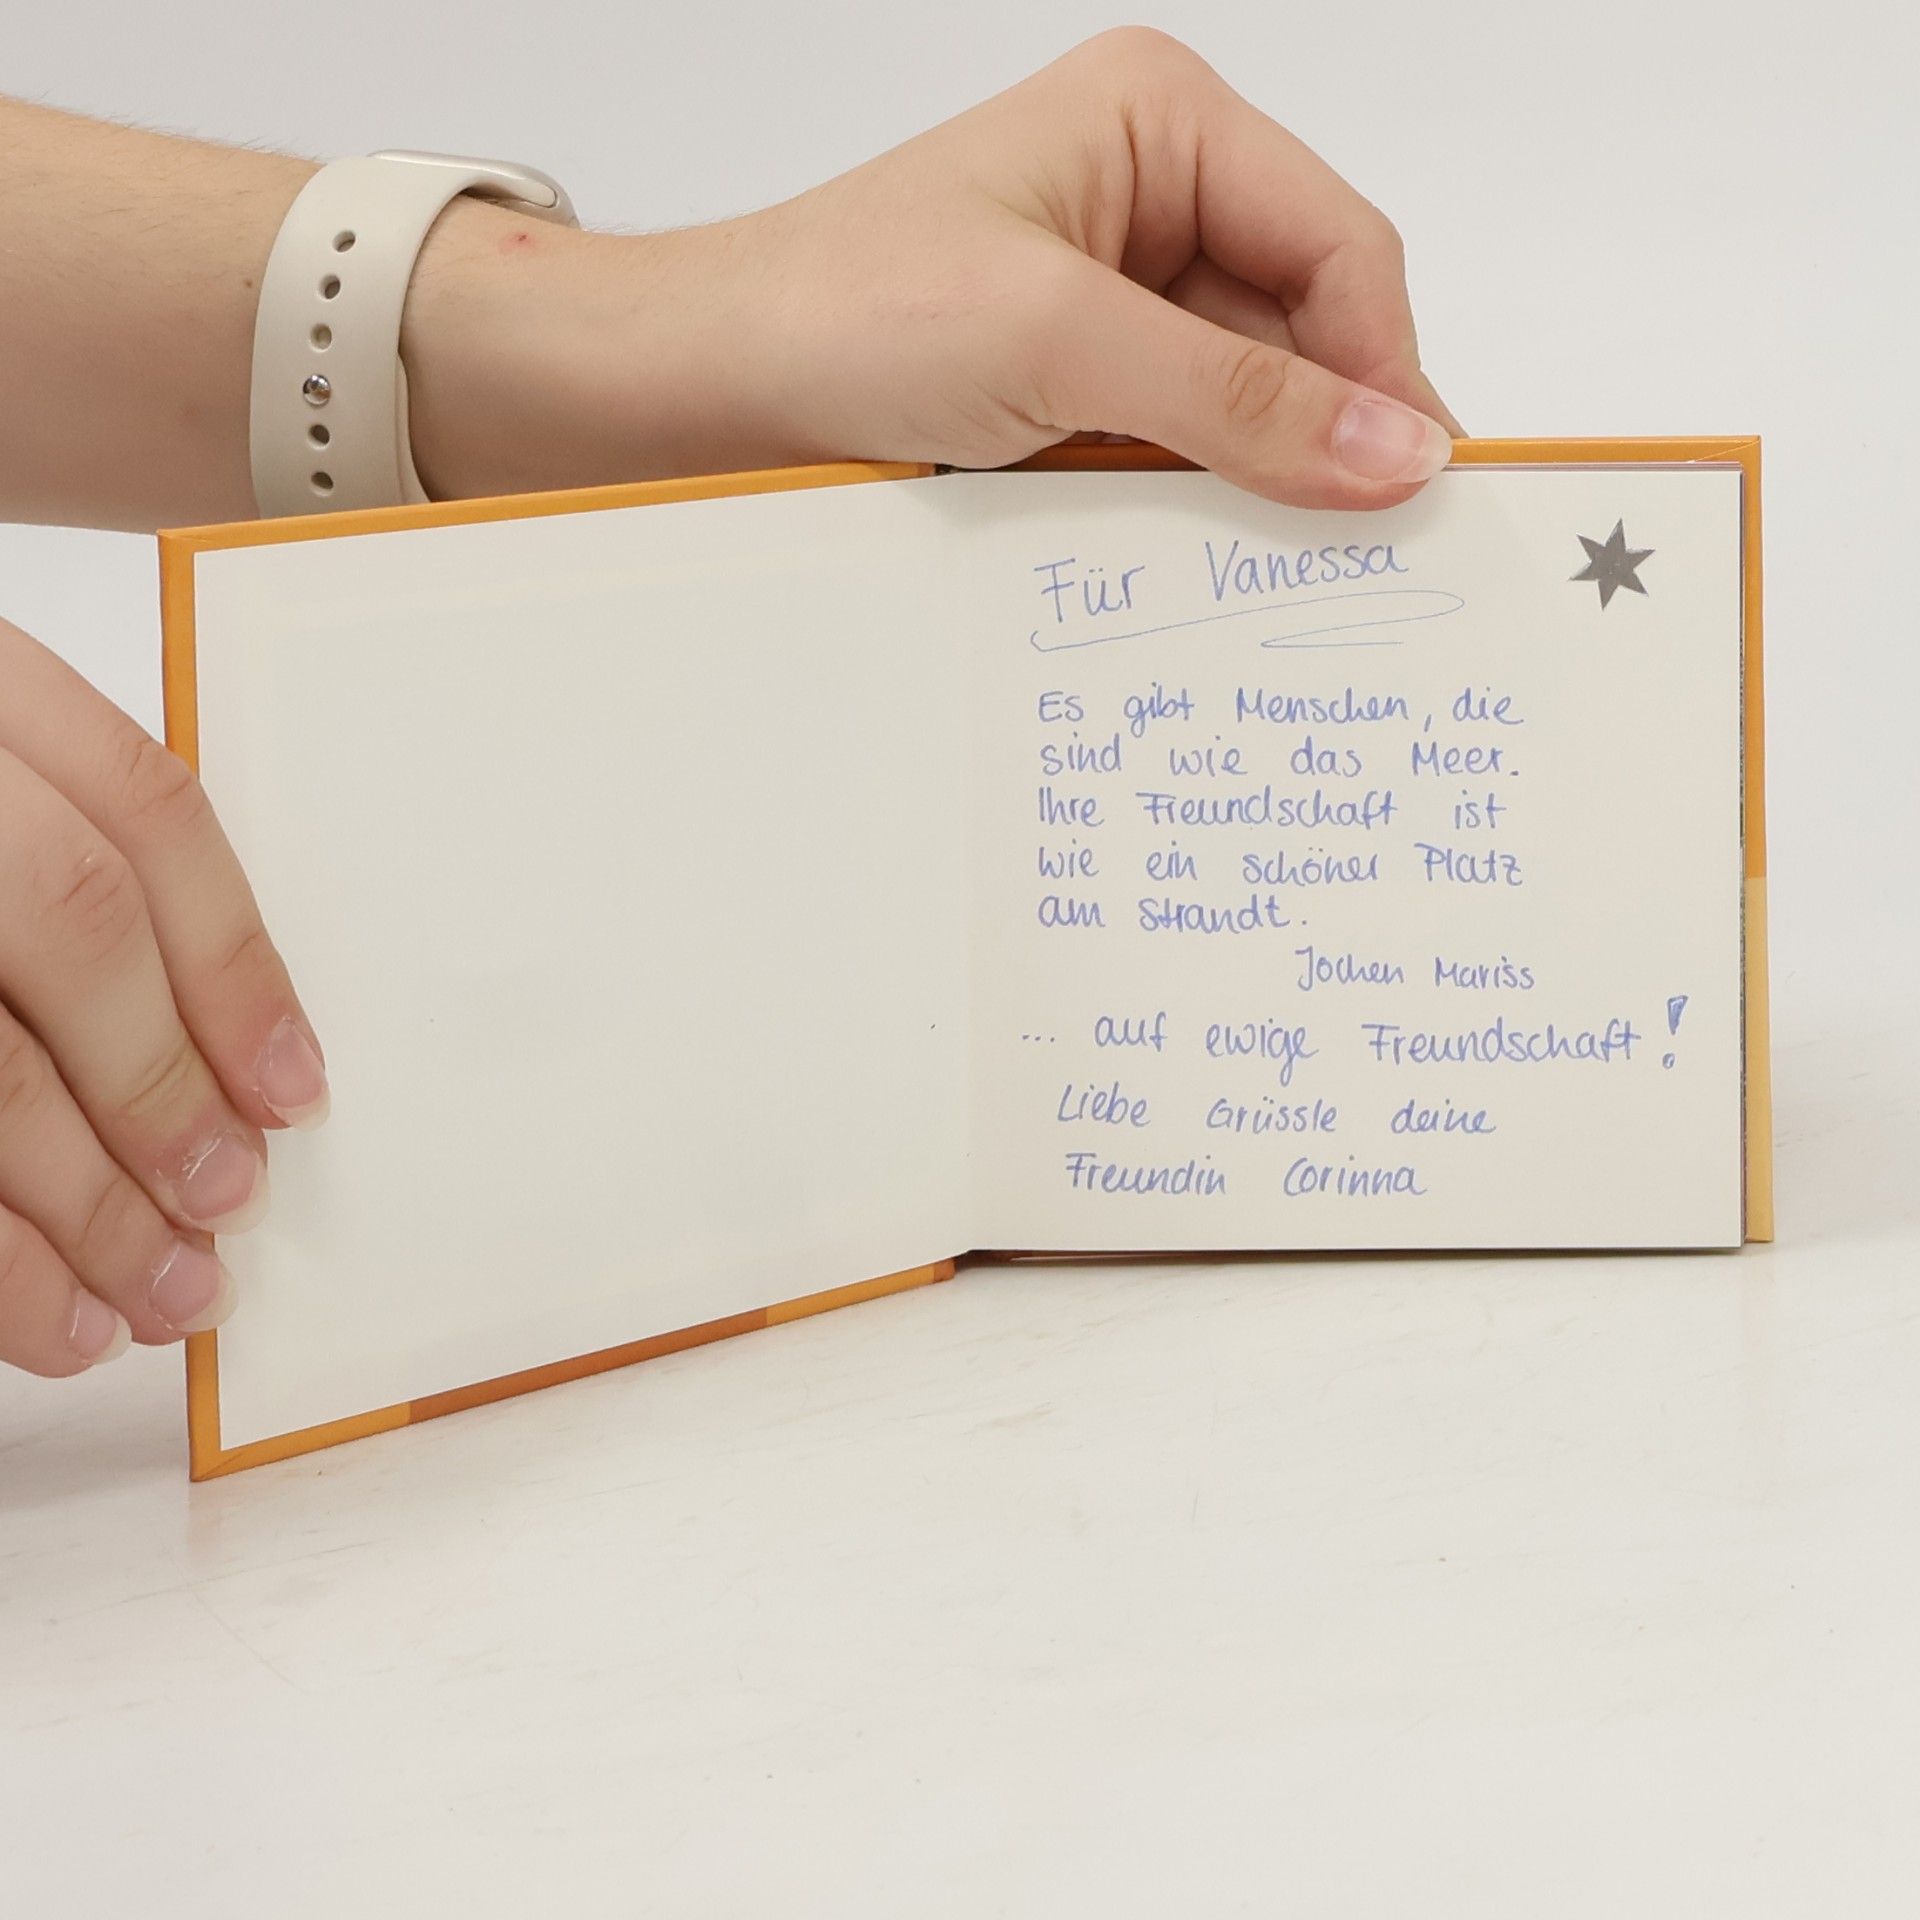 Für Vanessa
Es gibt Menschen, die
sind wie das Meer.
Ihre Freundschaft ist
wie ein schöner Platz
am Strandt.
Jochen Mariss
... auf ewige Freundschaft!
Liebe Grüssle deine
Freundin Corinna